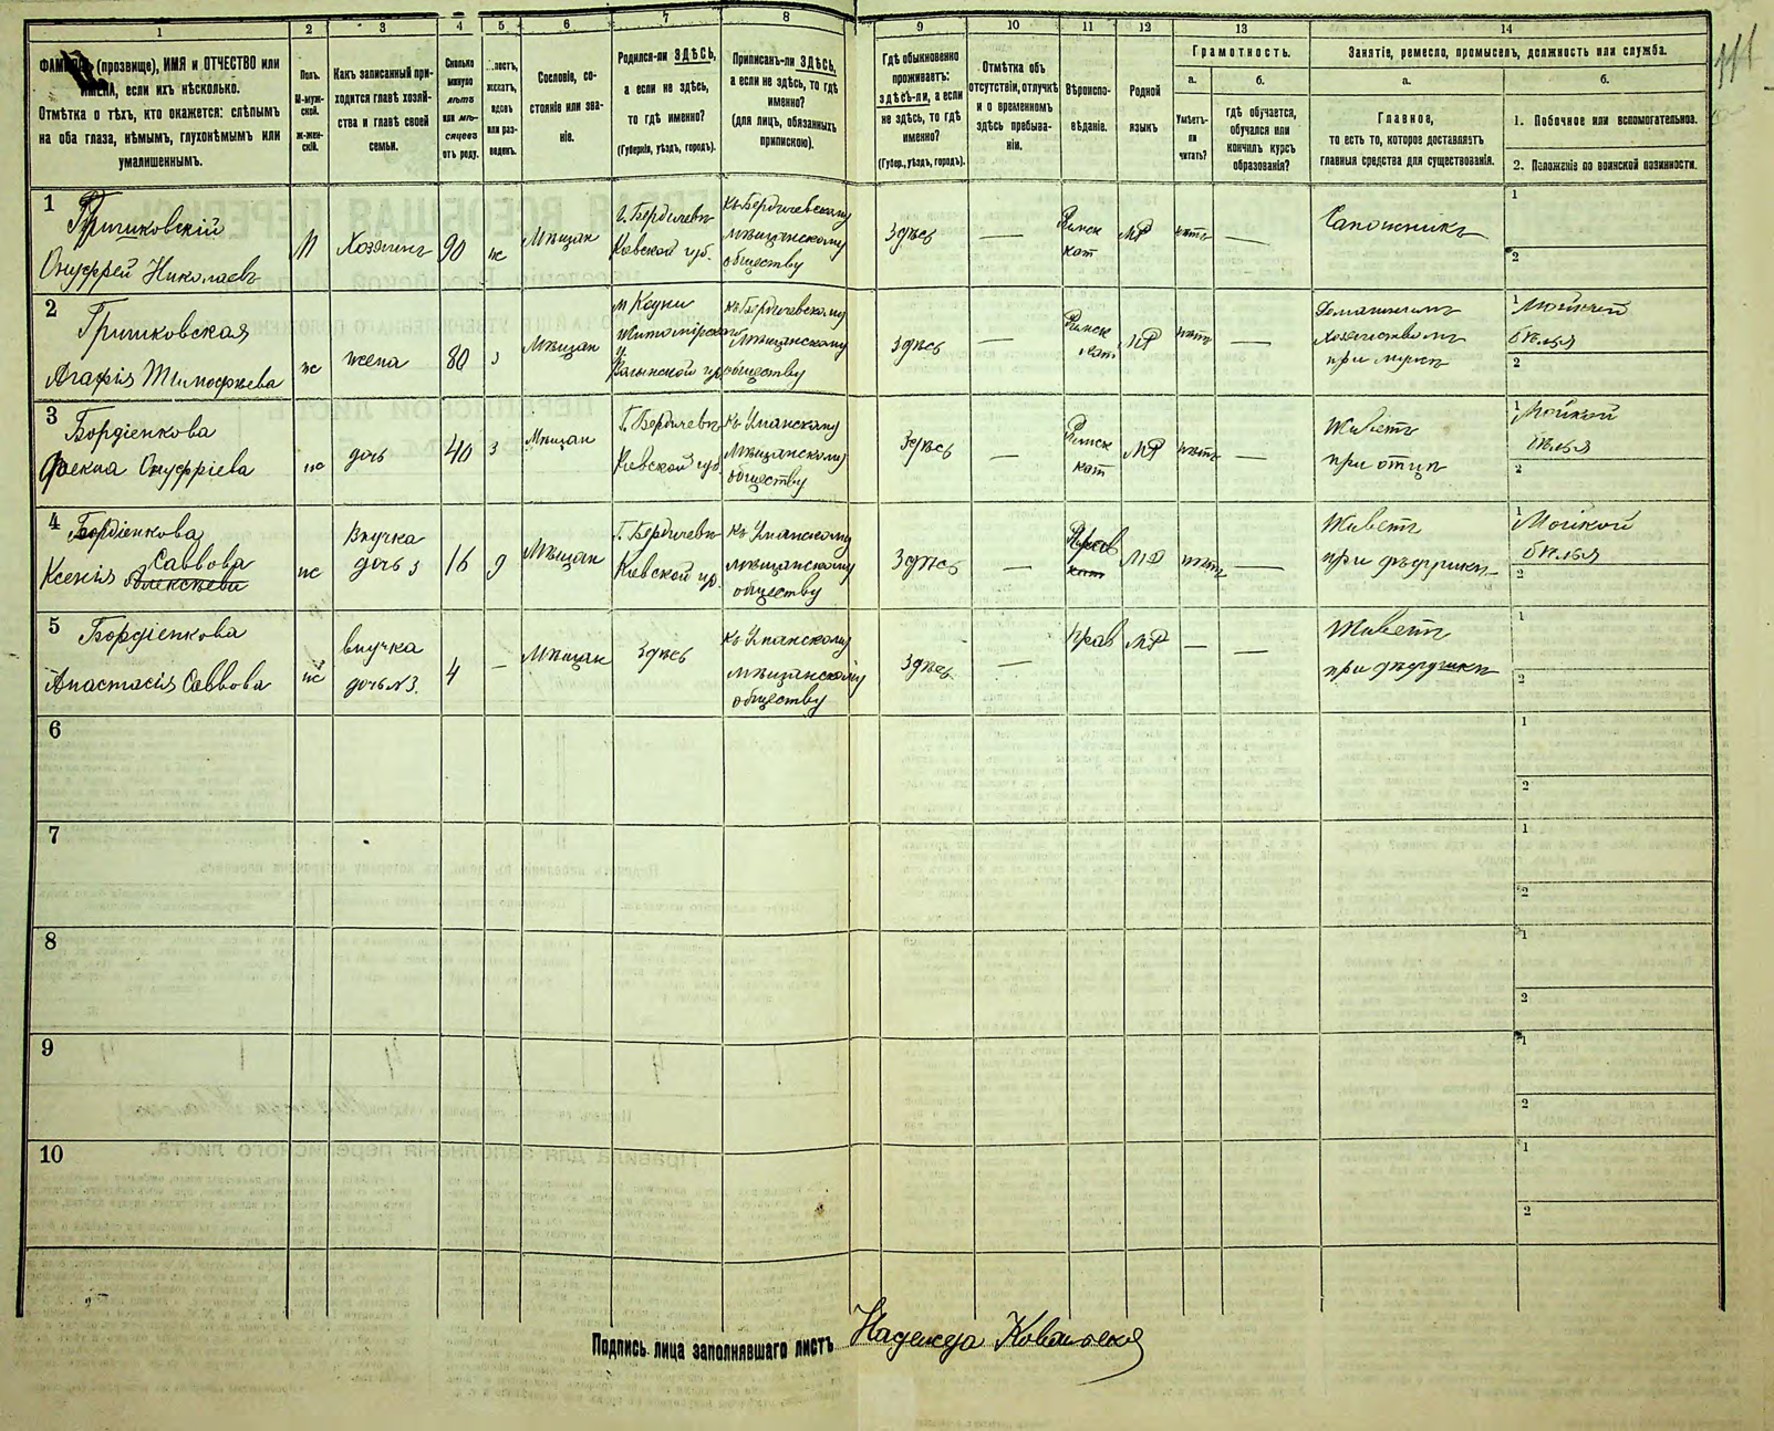 1
2
3
4
5
6
7
8
9
10
11
12
13
14
(прозвище), ИМЯ и ОТЧЕСТВО или
ИМЕНА, если ихъ нѣсколько.
Отмѣтка о тѣхъ, кто окажется: слѣпымъ
на оба глаза, нѣмымъ, глухонѣмымъ или
умалишеннымъ.
Полъ.
М-муж-
ской.
ж-жен-
скій.
Какъ записанный при-
ходится главѣ хозяй-
ства и главѣ своей
семьи.
Сколько
минуло
лѣтъ
или мѣ-
сяцевъ
отъ роду.
женатъ,
вдовъ
или раз-
веденъ.
Сословіе, со-
стояніе или зва-
ніе.
Родился-ли ЗДѢСЬ,
а если не здѣсь,
то гдѣ именно?
(Губернія, уѣздъ, городъ).
Приписанъ-ли ЗДѢСЬ,
а если не здѣсь, то гдѣ
именно?
(для лицъ, обязанныхъ
припискою).
Гдѣ обыкновенно
проживаетъ:
здѣсь-ли, а если
не здѣсь, то гдѣ
именно?
(Губер., уѣздъ, городъ).
Отмѣтка объ
отсутствіи, отлучкѣ
и о временномъ
здѣсь пребыва-
ніи.
Вѣроиспо-
вѣданіе.
Родной
языкъ.
Грамотность.
а.
Умѣетъ-
ли
читать?
б.
гдѣ обучается,
обучался или
кончилъ курсъ
образованія?
Занятіе, ремесло, промыселъ, должность или служба.
а.
Главное,
то есть то, которое доставляетъ
главныя средства для существованія.
б.
1. Побочное или вспомогательное.
2. Положеніе по воинской повинности.
1
Гришковскій
Онуфрей Николаевъ
М
Хозяинъ
90
ж
Мѣщан
г. Бердичевъ
Кіевской губ.
къ Бердичевскому
мѣщанскому
обществу
Здѣсь
—
Римск
кат
МР
нѣтъ
—
Сапожникъ
1
2
2
Гришковская
Агафія Тимофѣева
ж
жена
80
з
Мѣщан
м Кодни
Житомірскаго
у.
Волынской гу
къ Бердичевскому
Мѣщанскому
обществу
Здѣсь
—
Римск
кат
МР
нѣтъ
—
Домашнимъ
хозяйствомъ
при мужѣ
1
Мойкой
бѣлья
2
3
Бордіенкова
Фекла Онуфріева
ж
дочь
40
з
Мѣщан
Г. Бердичевъ
Кіевской губ
къ Уманскому
Мѣщанскому
обществу
Здѣсь
—
Римск
кат
МР
нѣтъ
—
Живетъ
при отцѣ
1
Мойкой
бѣлья
2
4
Бордіенкова
Саввова
Ксенія Алексѣева
ж
Внучка
дочь 3
16
д
Мѣщан
Г. Бердичевъ
Кіевской гу.
къ Уманскому
мѣщанскому
обществу
Здѣсь
—
Прав
кат
МР
нѣтъ
—
Живетъ
при дѣдушкѣ
1
Мойкой
бѣлья
2
5
Бордіенкова
Анастасія Саввова
ж
внучка
дочь №3.
4
—
Мѣщан
Здѣсь
къ Уманскому
мѣщанскому
обществу
Здѣсь
—
Прав
МР
—
—
Живетъ
при дѣдушкѣ
1
2
6
1
2
7
1
2
8
1
2
9
1
2
10
1
2
Подпись лица заполнявшаго листъ Надежда Ковальская